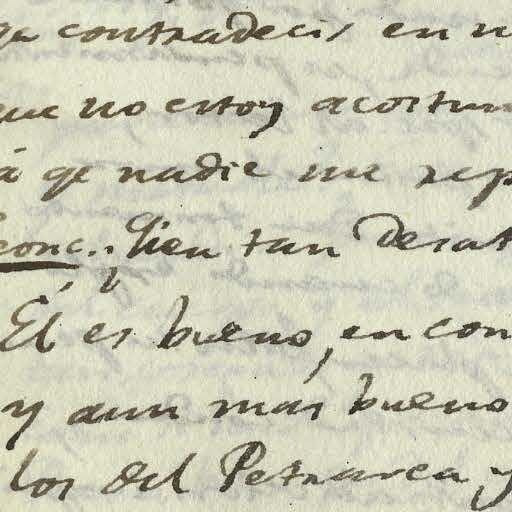 contradecis en
que no estoy acostum
á qe nadie me rep
Leonc.; Quien tan desat
Él es bueno, en con
y aun mas bueno
los del Petrarca, y